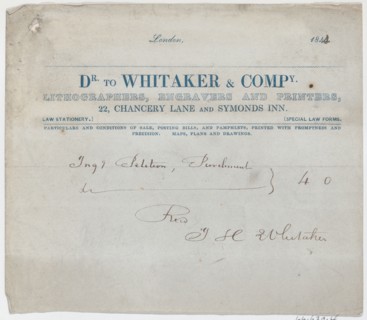 London, 184
DR. TO WHITAKER & COMPY.
LITHOGRAPHERS, ENGRAVERS AND PRINTERS,
22, CHANCERY LANE AND SYMONDS INN.
LAW STATIONERY.) (SPECIAL LAW FORMS.
PARTICULARS AND CONDITIONS OF SALE, POSTING BILLS, AND PAMPHLETS, PRINTED WITH PROMPTNESS AND
PRECISION. MAPS, PLANS AND DRAWINGS.
Ing. Petition, Parchment
4 0
T H Whitaker